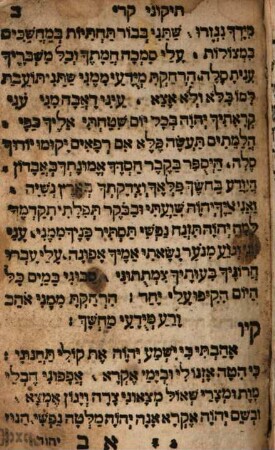 תיקוני קרי ב
מידך נגזרו: שתני בבור תחתיות במחשכים
במצולות: עלי סמכה חמתך וכל משבריך
ענית סלה: הרחקת מיודעי ממני שתני תועבת
למו כלא ולא אצא: עיני דאבה מני עני
קראתיך יהוה בכל יום שטחתי אליך כפי:
הלמתים תעשה פלא אם רפאים יקומו יודוך
סלה: היסופר בקבר חסדך אמונתך באבדון:
היודע בחשך פלאך וצדקתך בארץ נשיה:
ואני אליך יהוה שועתי ובבקר תפלתי תקדמך
למה יהוה תזנח נפשי תסתיר פניך ממני: עני
אני וגוע מנוער נשאתי אמיך אפונה: עלי עברו
חרוניך בעותיך צמתותוני: סבוני כמים כל
היום הקיפו עלי יחד: הרחקת ממני אהב
ורע מיודעי מחשך:
קיו
אהבתי כי ישמע יהוה את קולי תחנוני:
כי הטה אזנו לי ובימי אקרא: אפפוני חבלי
מות ומצרי שאול מצאוני צרה ויגון אמצא:
ובשם יהוה אקרא אנה יהוה מלטה נפשי: חנון
א ב יהוה